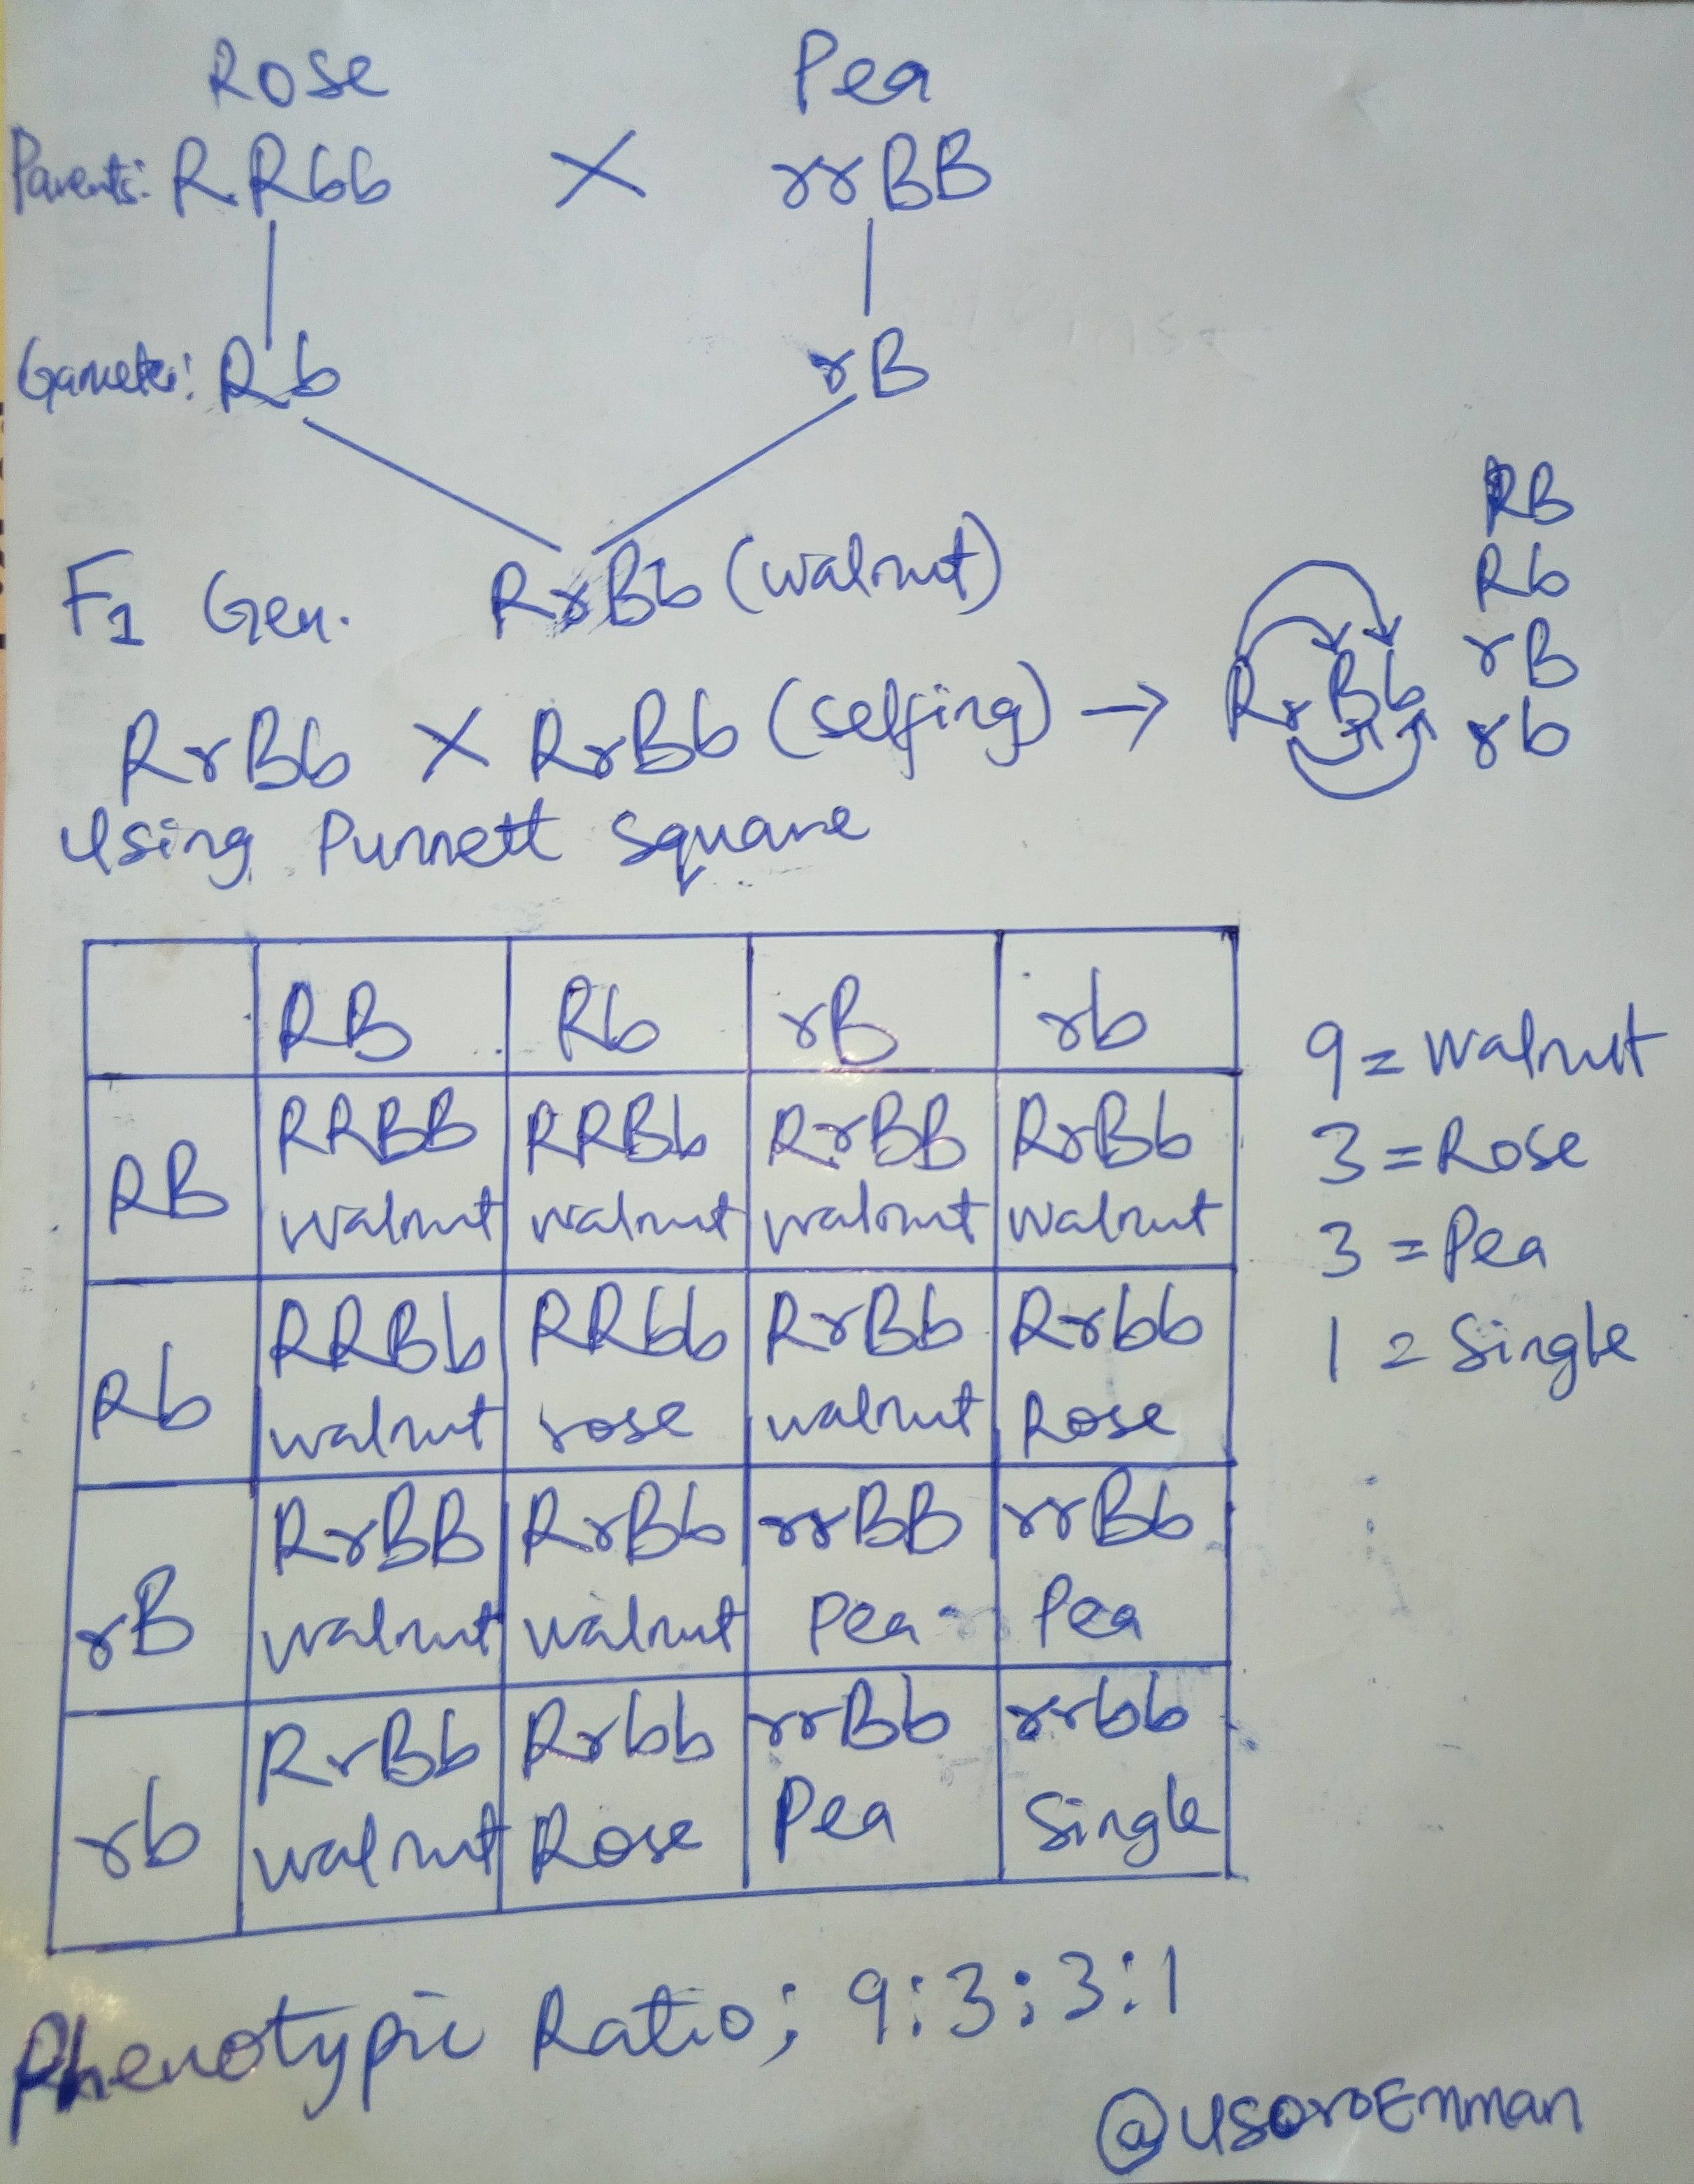 Rose Pea
Parents: RRbb X rrBB
Gametes: Rb rB
F1 Gen. RrBb (walnut)
RrBb X RrBb (selfing) → RrBb
RB
Rb
rB
rb
Using Punnett Square
RB Rb rB rb
RB RRBB RRBb RrBB RrBb
walnut walnut walnut walnut
Rb RRBb RRbb RrBb Rrbb
walnut rose walnut Rose
rB RrBB RrBb rrBB rrBb
walnut walnut Pea Pea
rb RrBb Rrbb rrBb rrbb
walnut Rose Pea Single
9 = walnut
3 = Rose
3 = Pea
1 = Single
Phenotypic Ratio; 9:3:3:1
@usoroEnman